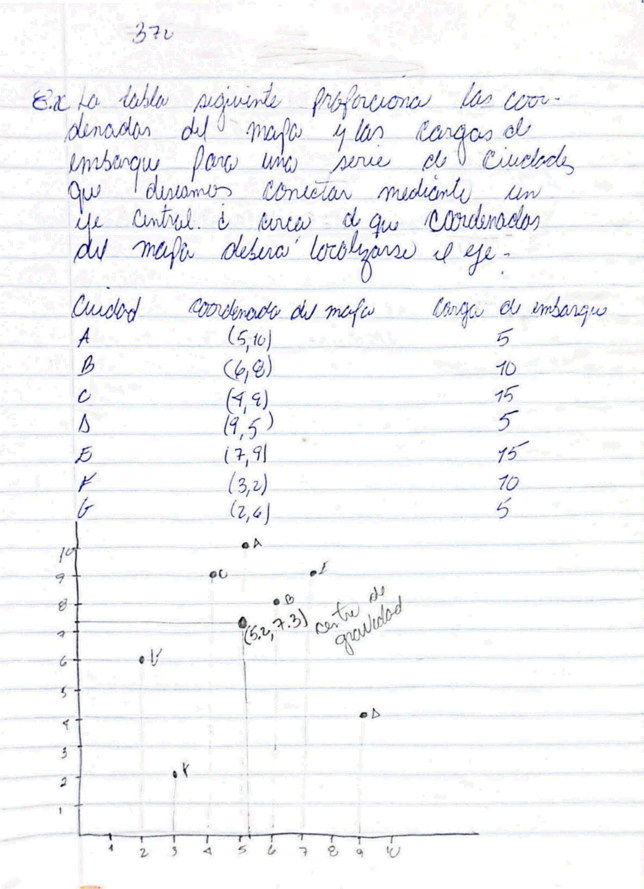 372
Ex La tabla siguiente proporciona las coor-
denadas del mapa y las cargas de
embarque para una serie de Ciudades
que deseamos conectar mediante un
eje central. ¿ cerca d que coordenadas
del mapa deberá localizarse el eje.
Ciudad coordenada del mapa Carga de embarque
A (5,10) 5
B (6,8) 10
C (4,9) 15
D (9,5) 5
E (7,9) 15
F (3,2) 10
G (2,6) 5
10 A
9 C E
8 B centro de
7 (5.2, 7.3) gravedad
6
5
4 D
3
2 F
1
1 2 3 4 5 6 7 8 9 10